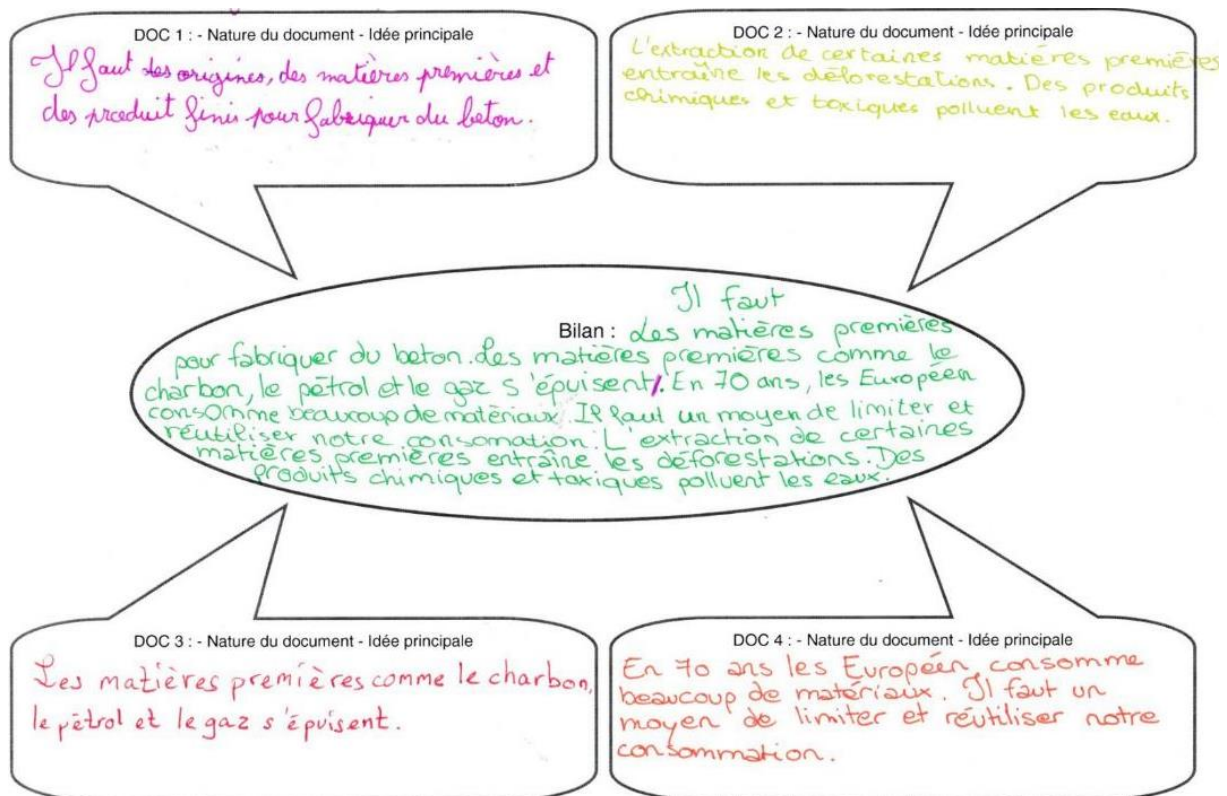 DOC 1 : - Nature du document - Idée principale
Il faut des origines, des matières premières et
des produit finis pour fabriquer du beton.
DOC 2 : - Nature du document - Idée principale
L'extraction de certaines matières premières
entraîne les déforestations. Des produits
chimiques et toxiques polluent les eaux.
Il faut
Bilan : Les matières premières
pour fabriquer du beton. Les matières premières comme le
charbon, le pétrol et le gaz s'épuisent. En 70 ans, les Européen
consomme beaucoup de matériaux. Il faut un moyen de limiter et
réutiliser notre consomation. L'extraction de certaines
matières premières entraîne les déforestations. Des
produits chimiques et toxiques polluent les eaux.
DOC 3 : - Nature du document - Idée principale
Les matières premières comme le charbon,
le pétrol et le gaz s'épuisent.
DOC 4 : - Nature du document - Idée principale
En 70 ans les Européen consomme
beaucoup de matériaux. Il faut un
moyen de limiter et réutiliser notre
consommation.